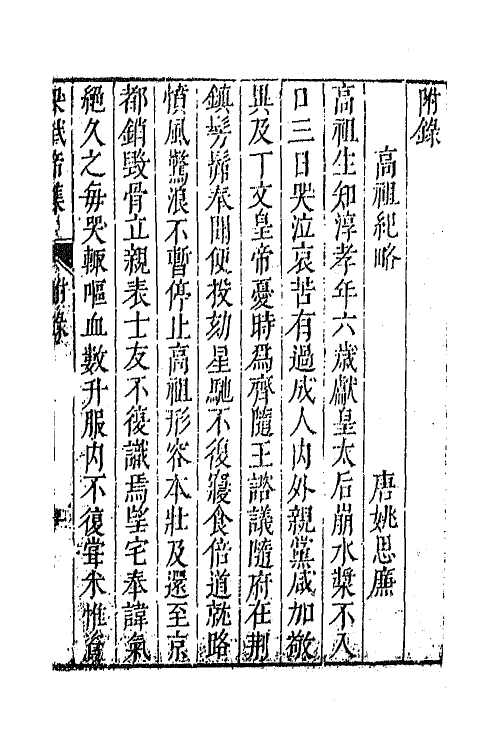 附錄
高祖紀略 唐姚思廉
高祖生知淳孝年六歲獻皇太后崩水漿不入
口三日哭泣哀苦有過成人內外親黨咸加敬
異及丁文皇帝憂時爲齊隨王諮議隨府在荆
鎮髣髴奉聞便投劾星馳不復寢食倍道就路
憤風驚浪不暫停止高祖形容本壯及還至京
都銷毀骨立親表士友不復識焉望宅奉諱氣
絕久之每哭輒嘔血數升服內不復嘗米惟資
梁武帝集 附錄